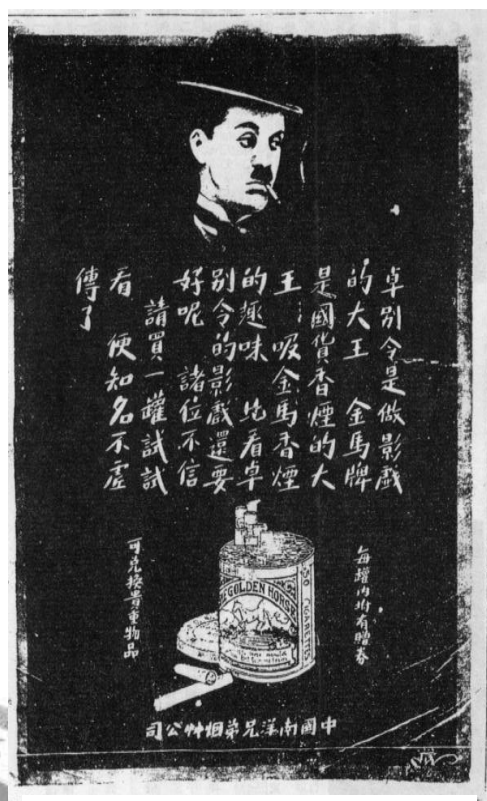 卓別令是做影戲
的大王　金馬牌
是國貨香煙的大
王：吸金馬香煙
的趣味　比看卓
別令的影戲還要
好呢　諸位不信
請買一罐試試
看　便知名不虛
傳了
每罐內附有贈券
可兌換貴重物品
GOLDEN HORSE
50
CIGARETTES
中國南洋兄弟烟艸公司